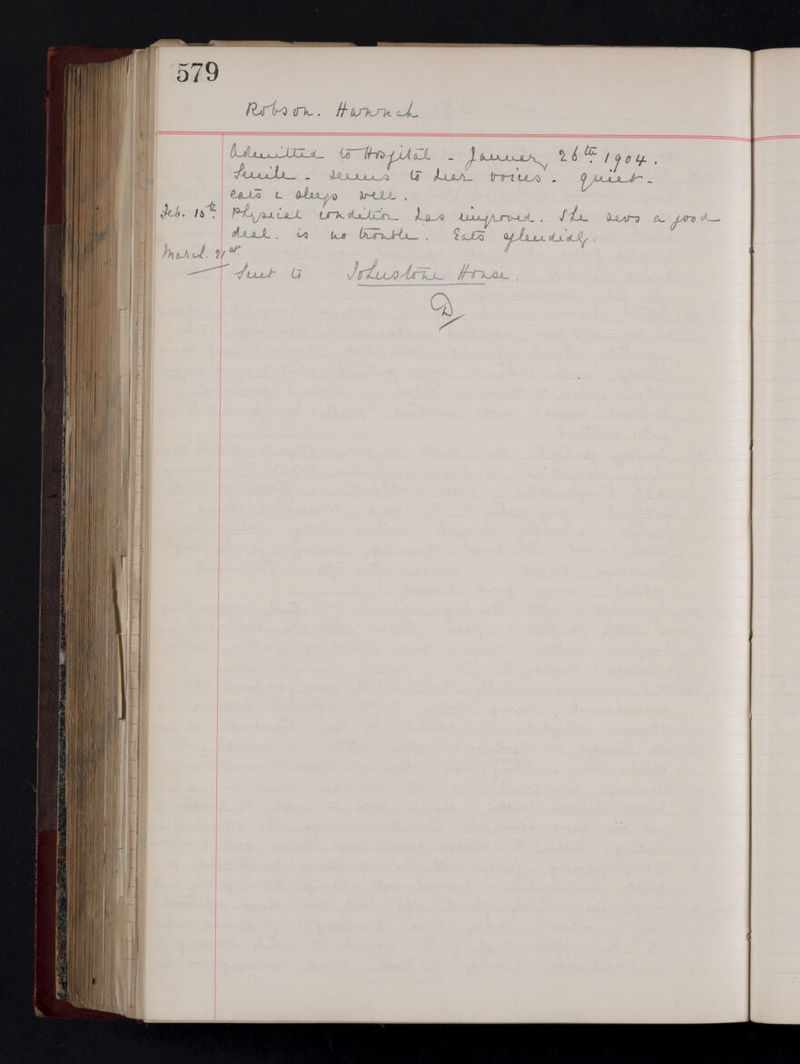 579
Robson. Hannah
Admitted to Hospital - January 26th 1904.
Senile - seems to hear voices - quiet -
eats & sleeps well.
Feb. 15th Physical condition has improved. She sews a good
deal. is no trouble. Eats splendidly.
March. 21st
Sent to Johnstone House.
D